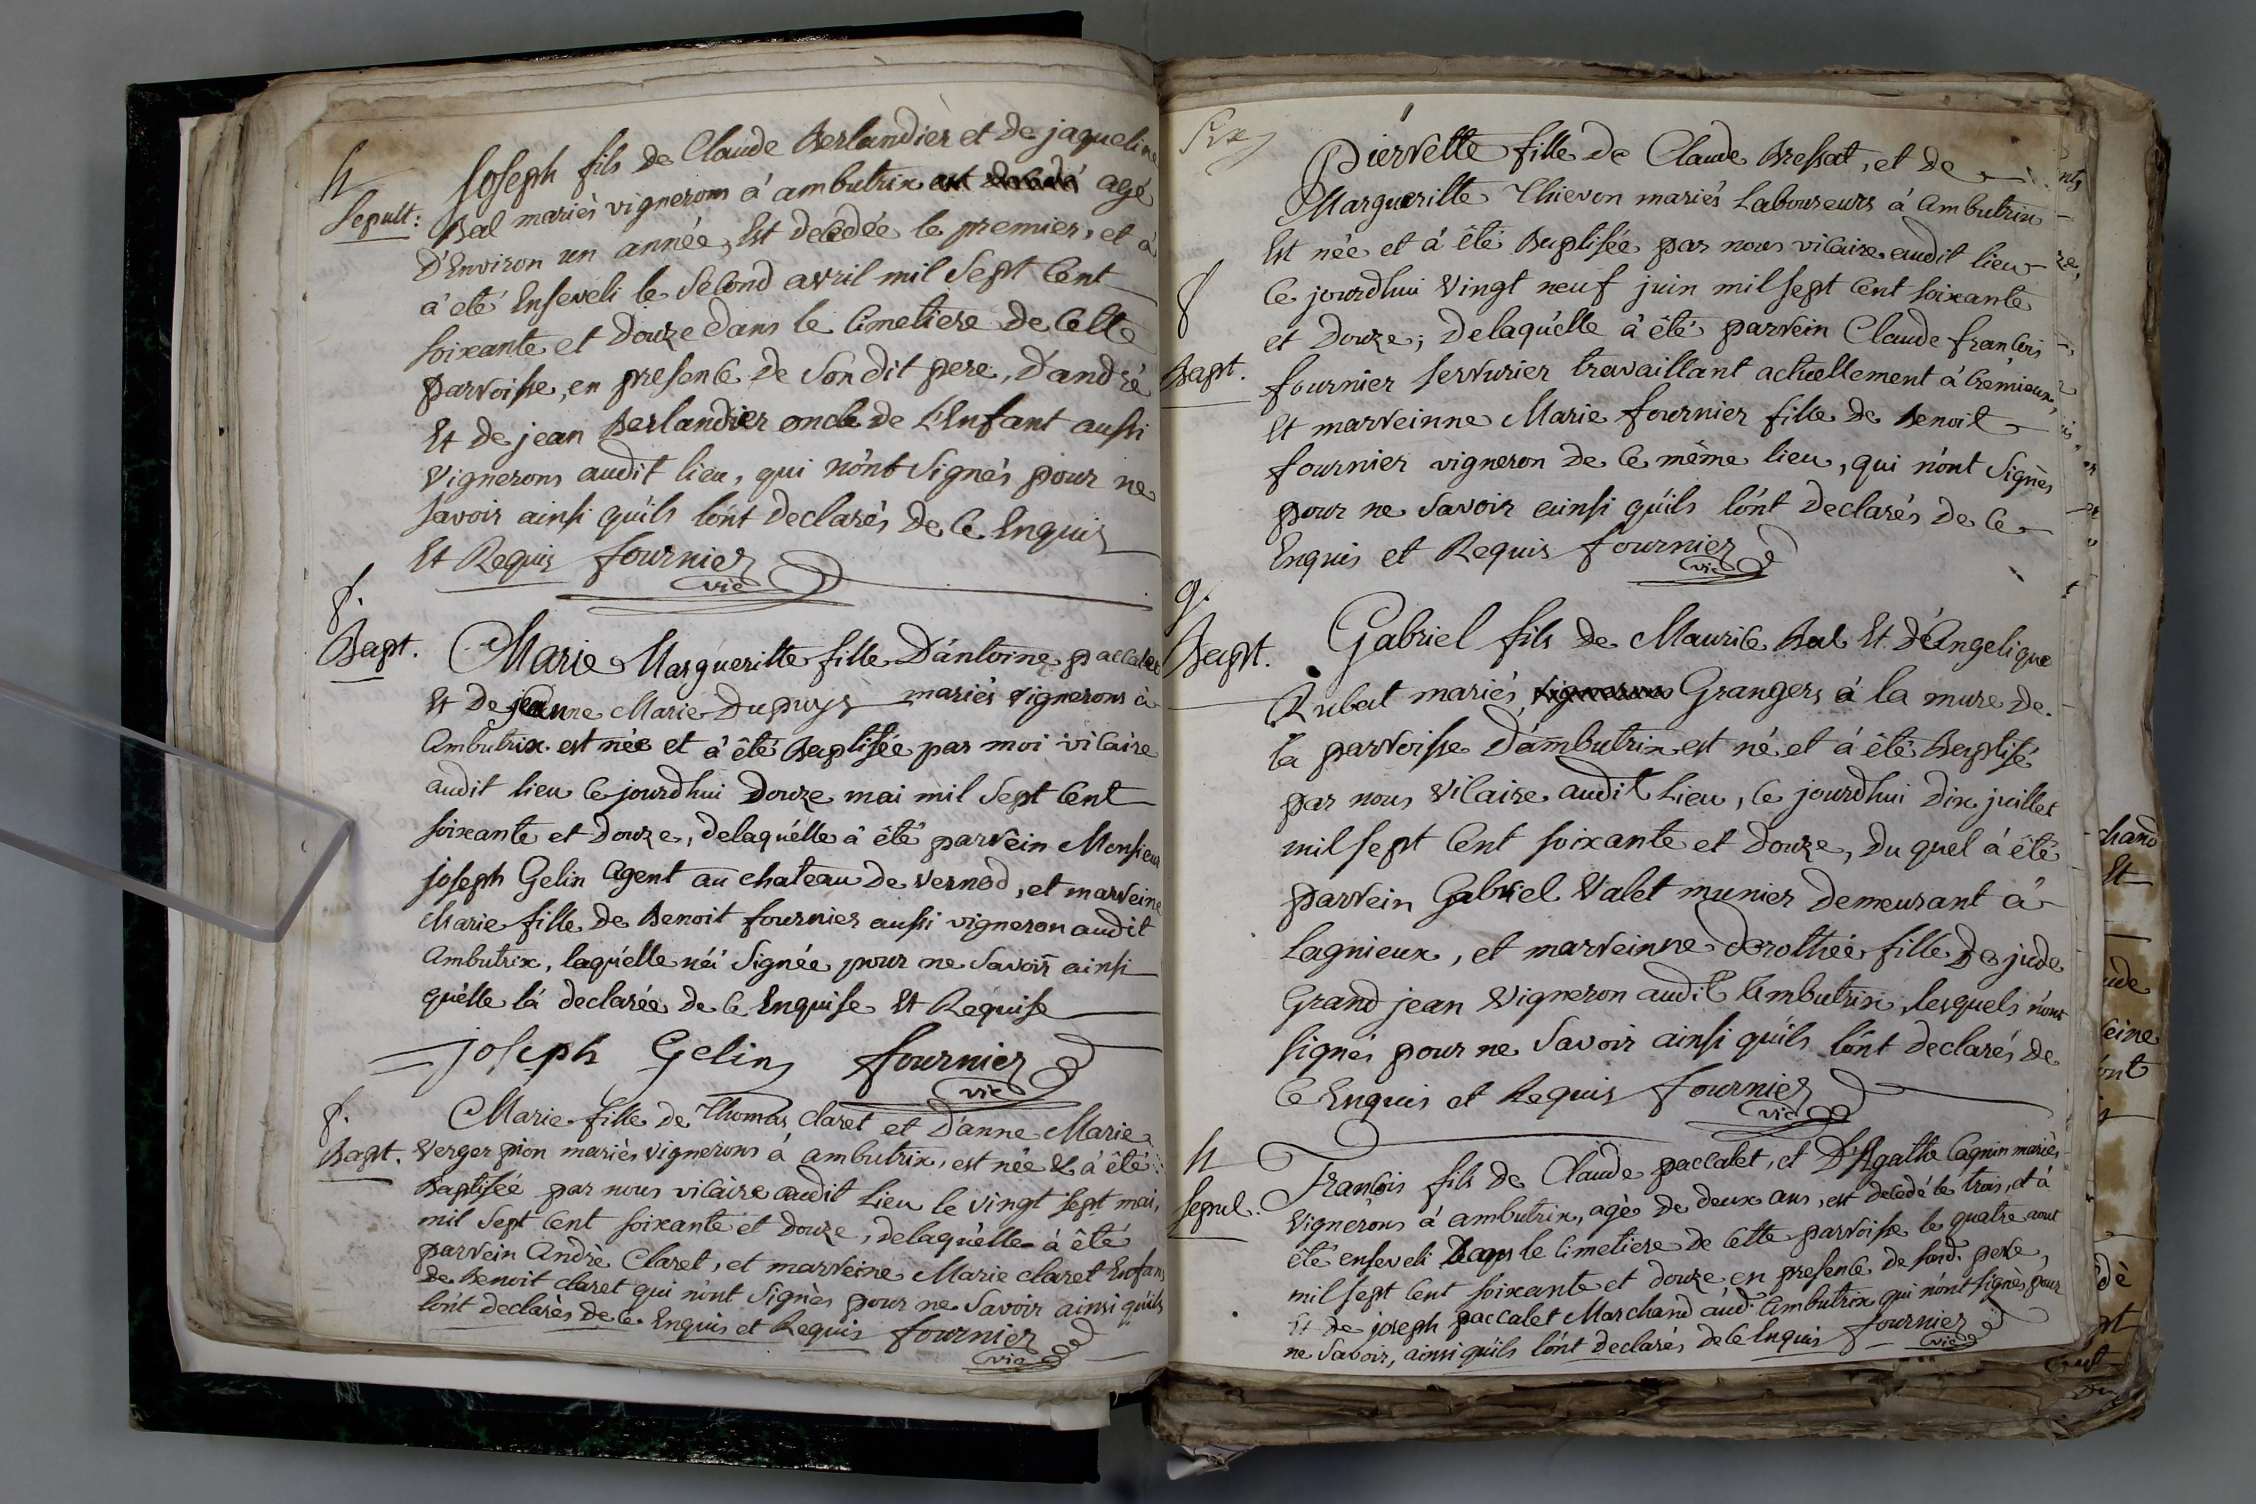 h
Sepult:
Joseph fils de Claude Berlandier et de jaqueline
Bal mariès vignerons á ambutrix est decedé agé
D'Environ un année, Est decedée le premier, et á
á eté Enseveli le Second avril mil Sept Cent
soixante et Douze Dans le Cimetiere De Cette
parroisse, en presence De Son dit pere, D'andré
Et de jean Berlandier oncle de L'Enfant aussi
vignerons audit lieu, qui n'ont Signés pour ne
savoir ainsi qu'ils l'ont Declarés De Ce Enquis
Et Requis fournier
vic
8.
Bapt.
Marie Margueritte fille D'antoine paccalet
Et De jeanne Marie Dupuys mariés vignerons á
Ambutrix est née et á été Baptisée par moi vicaire
audit lieu Ce jourdhui Douze mai mil Sept Cent
soixante et Douze, Delaquélle á été parrein Monsieur
joseph Gelin Agent au chateau De Vernod, et marreine
Marie fille De Benoit fournier aussi vigneron audit
Ambutrix, laquélle n'á Signée pour ne Savoir ainsi
qu'elle l'á declarée de Ce Enquise Et Requise
joseph Gelin fournier
vic
8.
Bapt.
Marie fille de Thomas Claret et D'anne Marie
Verger pion mariès vignerons á ambutrix, est née & á été
Baptisée par nous vicaire audit Lieu le vingt Sept mai,
mil Sept Cent soixante et Douze, Delaquélle á été
parrein Andrè Claret, et marreine Marie claret Enfans
De Benoit claret qui n'ont Signès pour ne Savoir ainsi qu'ils
l'ont declarés de Ce Enquis et Requis fournier
vic
Pierrette fille de Claude Bressat, et de
Margueritte Thievon mariés Laboureurs á Ambutrix
Est née et á été Baptisée par nous vicaire audit lieu
Ce jourdhui Vingt neuf juin mil sept Cent soixante
8
et Douze; Delaquélle á été parrein Claude françois
Bapt.
fournier serrurier travaillant actuellement á Crémieux,
Et marreinne Marie fournier fille de Benoit
fournier vigneron de Ce même lieu, qui n'ont Signès
pour ne Savoir ainsi qu'ils l'ónt Declarés de Ce
Enquis et Requis fournier
vic
9.
Bapt.
Gabriel fils De Maurice Bal Et D'Angelique
Rubat mariés, vignerons Grangers á la mure De
la parroisse D'ambutrix est né et á été Baptisé
par nous Vicaire audit Lieu, Ce jourdhui Dix juillet
mil sept Cent soixante et Douze, Du quel á été
parrein Gabriel Valet munier Demeurant á
Lagnieux, et marreinne Dorothée fille De jude
Grand jean Vigneron audit Ambutrix, lesquels n'ont
signés pour ne Savoir ainsi qu'ils l'ónt declarés de
Ce Enquis et Requis fournier
vic
h
Sepul.
François fils de Claude paccalet, et D'Agathe Cagnin mariès
Vignerons á ambutrix, agè De Deux ans, est decedé le trois, et á
été enseveli Dans le Cimetiere De Cette parroisse le quatre aout
mil sept Cent soixante et douze en presence De sond. pere,
Et De joseph paccalet Marchand aud. Ambutrix qui n'ont signès pour
ne Savoir, ainsi qu'ils l'ont Declarés De Ce Enquis fournier
vic
chand
Et